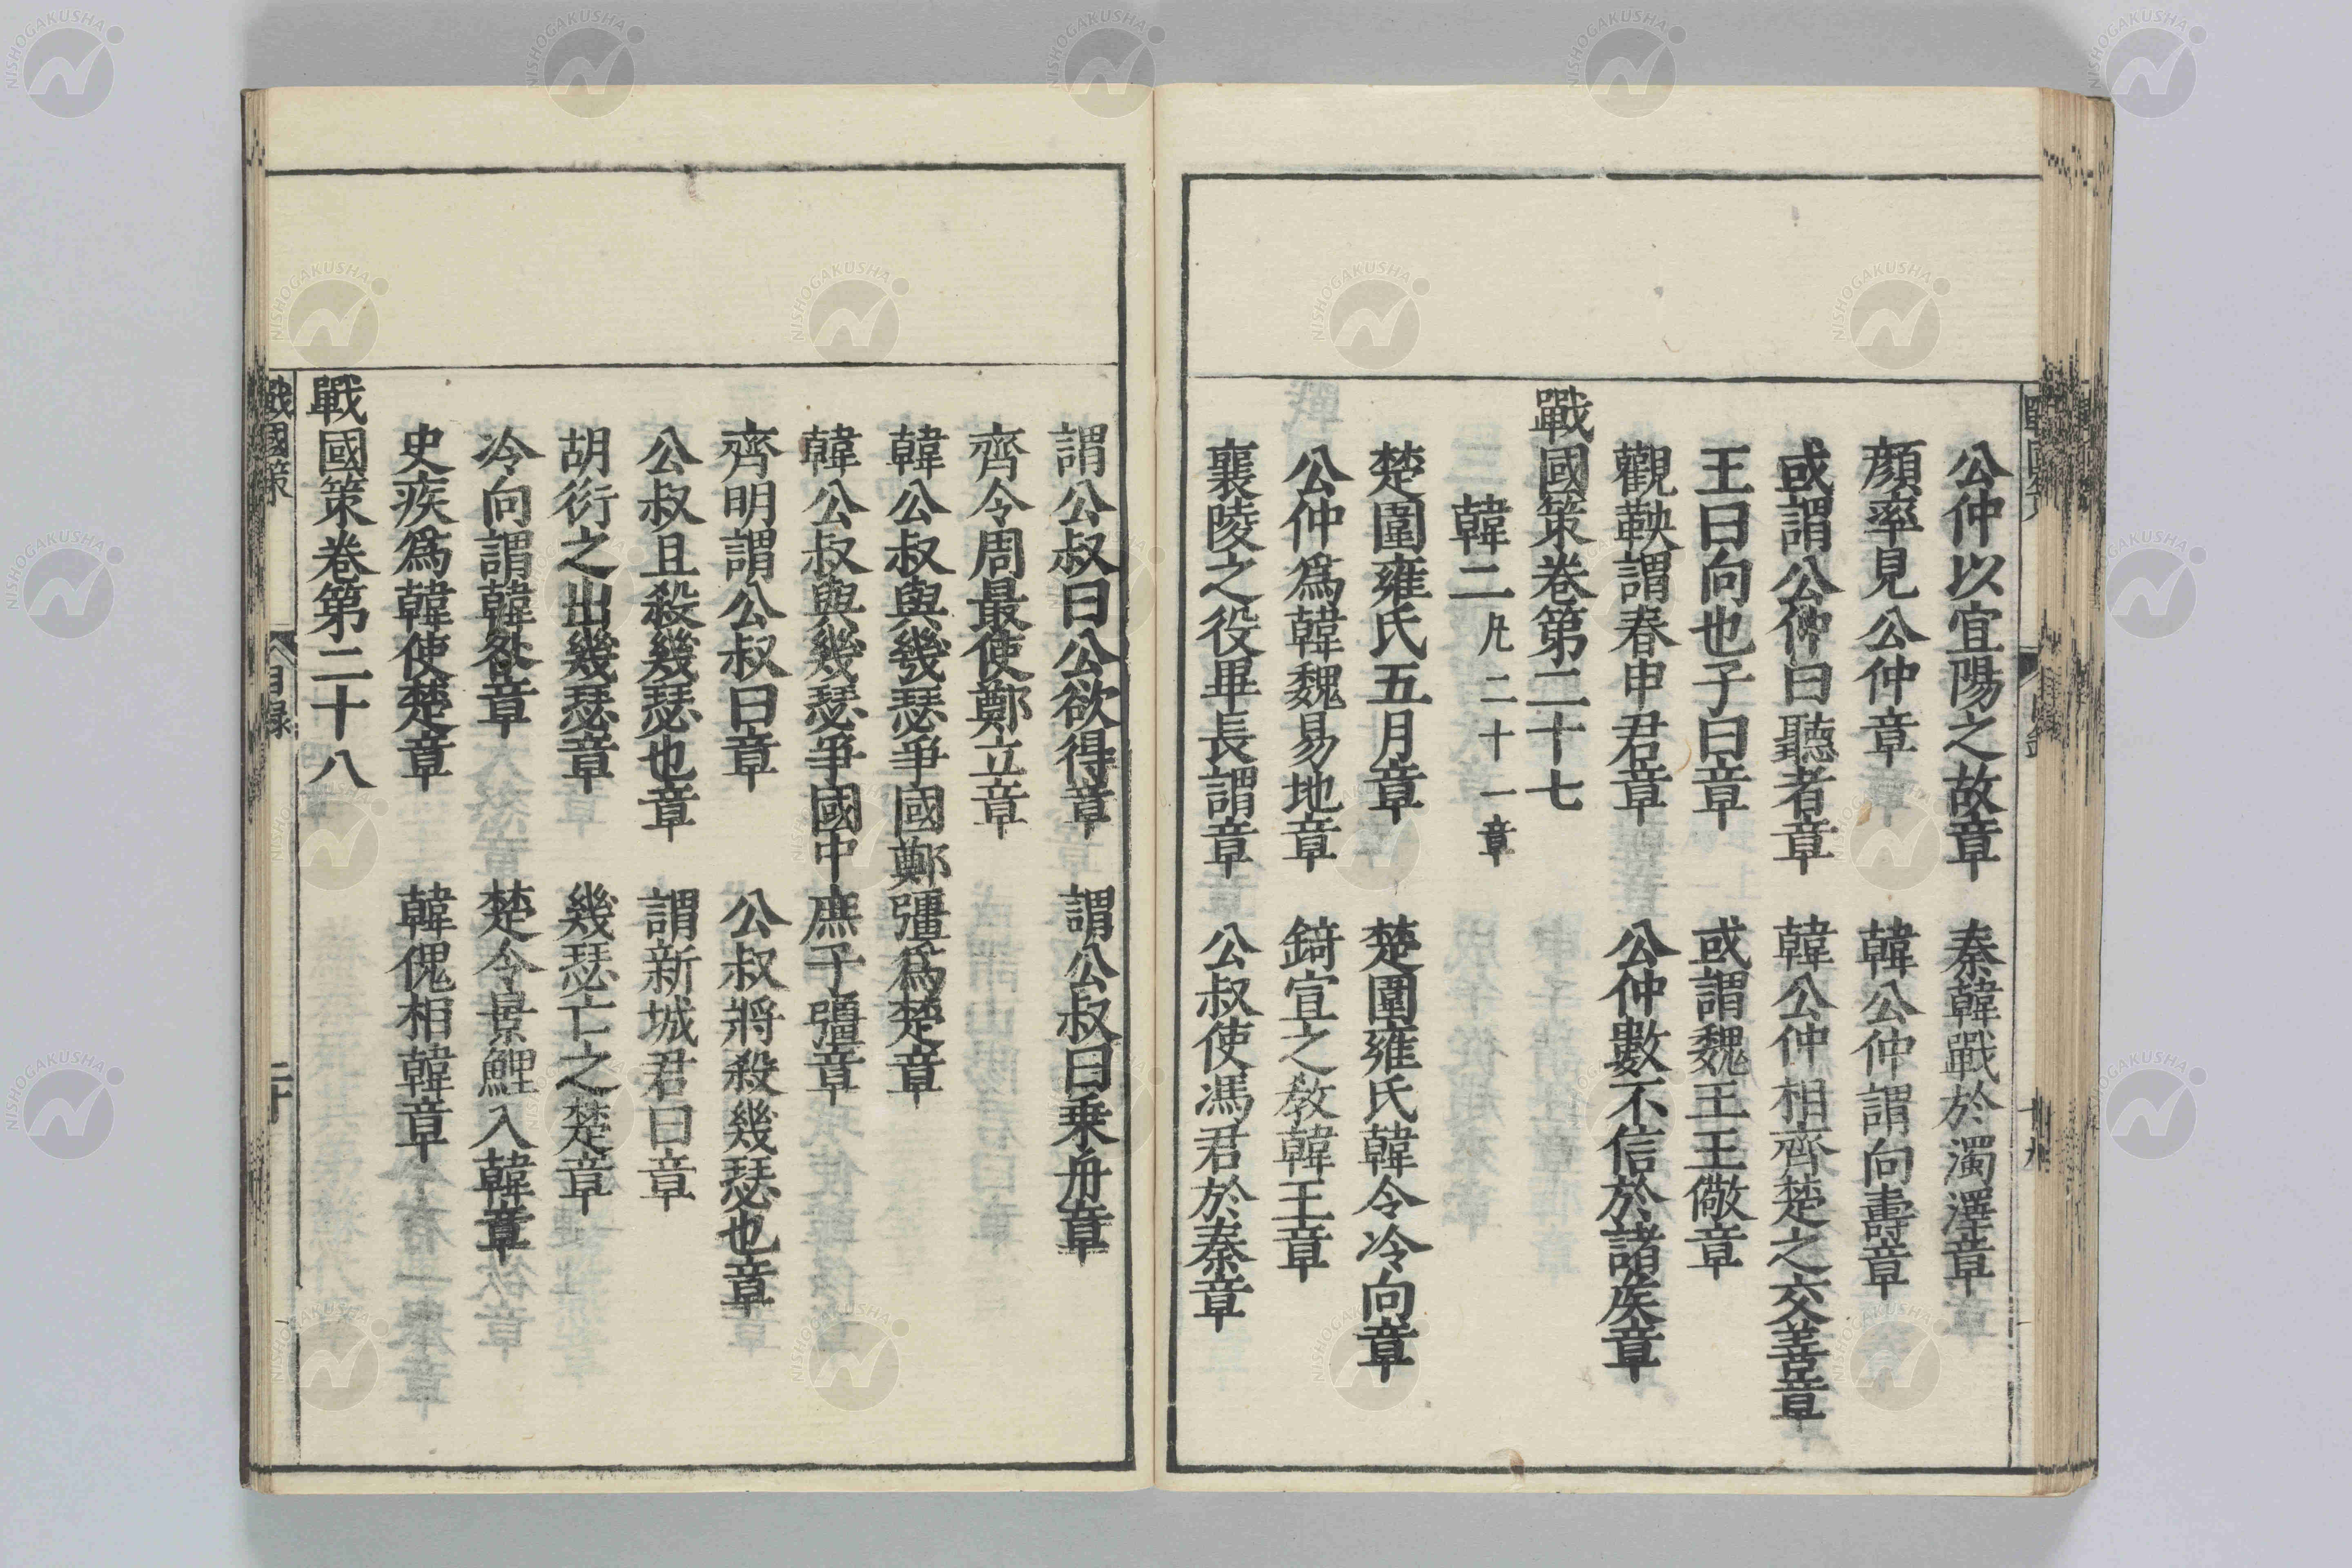 公仲以宜陽之故章　秦韓戰於濁澤章
顏率見公仲章　韓公仲謂向壽章
或謂公仲曰聽者章　韓公仲相齊楚之交善章
王曰向也子曰章　或謂魏王王儆章
觀鞅謂春申君章　公仲數不信於諸侯章
戰國策卷第二十七
韓二 凡二十一章
楚圍雍氏五月章　楚圍雍氏韓令冷向章
公仲爲韓魏易地章　錡宣之敎韓王章
襄陵之役畢長謂章　公叔使馮君於秦章
謂公叔曰公欲得章　謂公叔曰乗舟章
齊令周最使鄭立章
韓公叔與幾瑟爭國鄭彊爲楚章
韓公叔與幾瑟爭國中庶子彊章
齊明謂公叔曰章　公叔將殺幾瑟也章
公叔且殺幾瑟也章　謂新城君曰章
胡衍之出幾瑟章　幾瑟亡之楚章
冷向謂韓咎章　楚令景鯉入韓章
史疾爲韓使楚章　韓傀相韓章
戰國策卷第二十八
戰國策　目録　二十
NISHOGAKUSHA